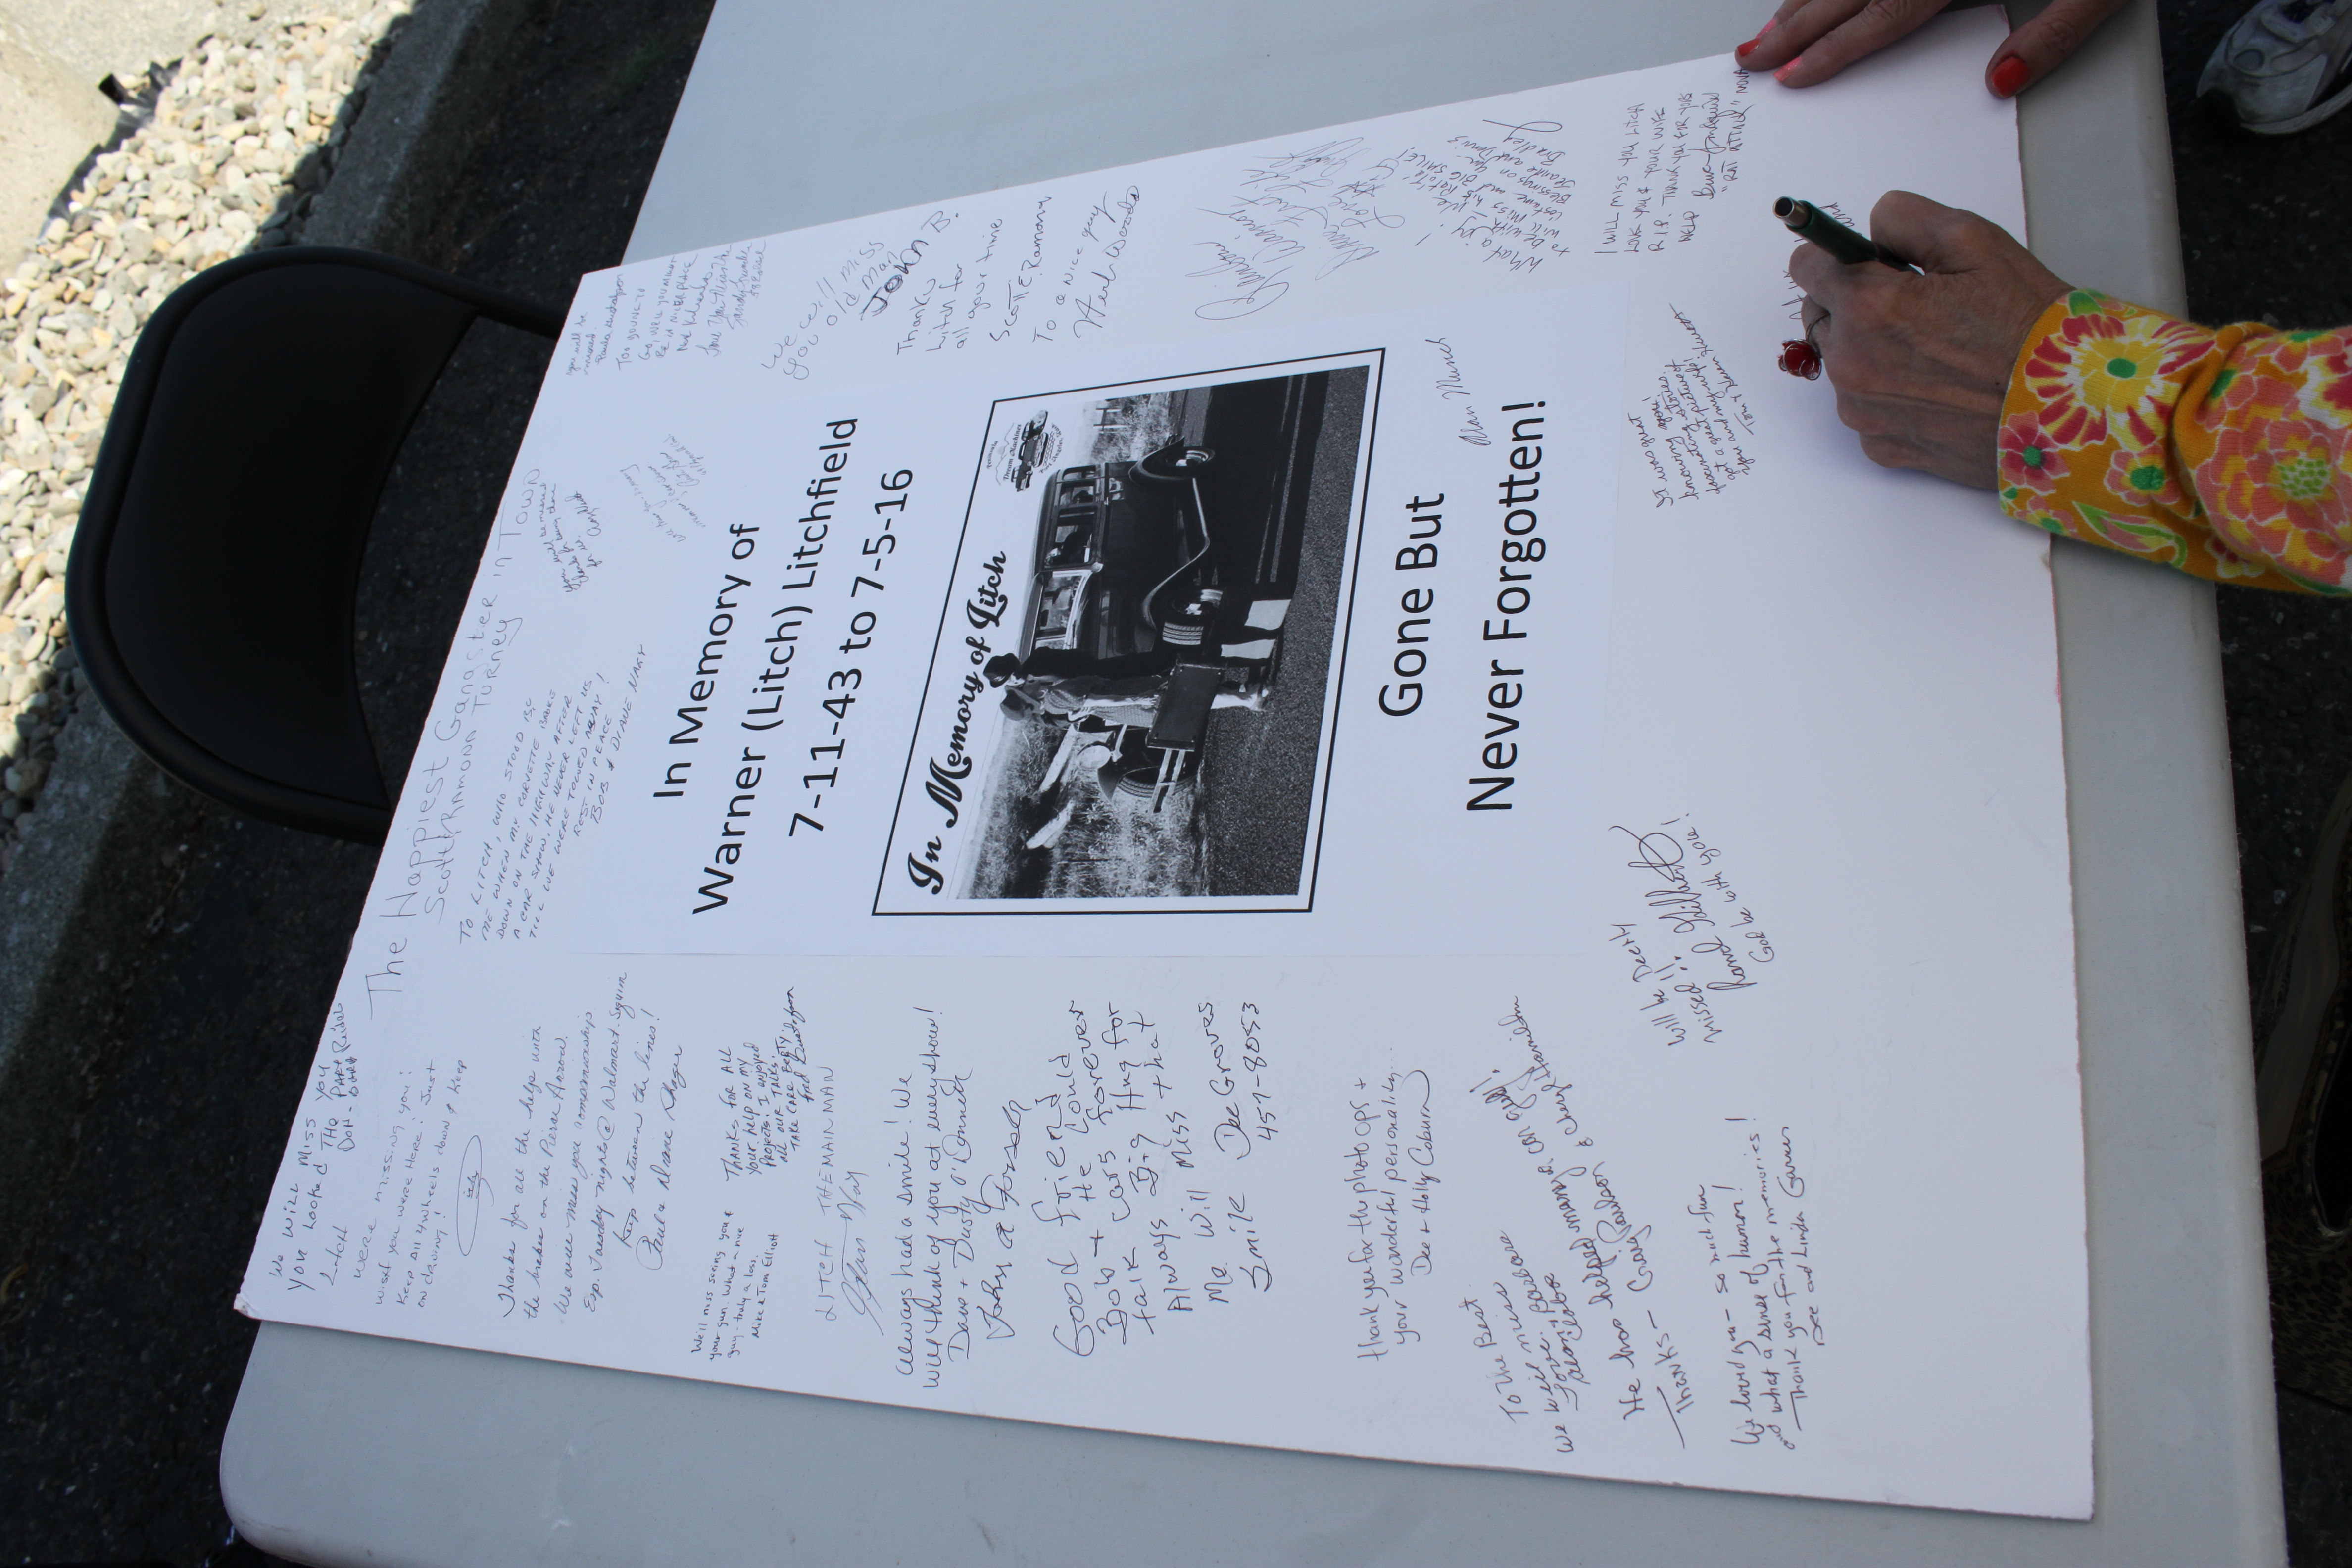 In Memory of
Warner (Litch) Litchfield
7-11-43 to 7-5-16
In Memory of Litch
Gone But
Never Forgotten!
Alan Munch
We will miss you
You Looked THE PART
Litch
were missing you!
wish you were Here! Just
Keep All 4 wheels down & keep
on clawing!
The Happiest Gangster in Town
Scott Raymond Turney
TO LITCH, WHO STOOD BY
ME WHEN MY CORVETTE BROKE
DOWN ON THE HIGHWAY AFTER
A CAR SHOW. HE NEVER LEFT US
TILL WE WERE TOWED AWAY!
REST IN PEACE
BOB & DIANE
you will be missed
Thanks for being there
for us.
you will be
missed.
Too young to
Go, we'll you must
Be in nicer place
We will miss
you old man
JOHN B.
Thank u
Litch for
all your time
Scott E. Ramony
To a nice guy
Herb Woods
Thanks for all the help with
the brakes on the Pierce Arrow.
We will miss you companionship
Esp. Tuesday nights @ Walmart-Sequim
Keep between the lines!
Paul & Diane
We'll miss seeing you &
your gun. What a nice
guy - truly a loss.
Mike & Tom Elliott
THANKS FOR ALL
YOUR HELP ON MY
PROJECTS. I ENJOYED
ALL OUR TALKS.
TAKE CARE
LITCH THE MAIN MAN
Always had a smile! We
will think of you at every show!
Dave + Dusty O'Donnell
Good friend
Bob + He Could
talk cars forever
Always Big Hug for
Me. Will Miss that
Smile Dee Graves
457-8053
Thank you for the photo ops +
your wonderful personality...
Dee + Holly Coburn
To the Best
We will miss
He has helped many a car guy!!
Thanks - Craig
We loved you - so much fun
and what a sense of humor!
Thank you for the memories!
Dee and Linda
Will be Deerly
Missed!!
God be with you!
What a joy!
to be with! We
will miss his "Patoto"
costume and BIG SMILE!
Blessings on you -
Jeanne and Dennis
Bradley
I WILL MISS YOU LITCH
LOVE YOU & YOUR WIFE
R.I.P. THANK YOU FOR YOUR
HELP
It was great
knowing you!
got a great picture of
you and my family!